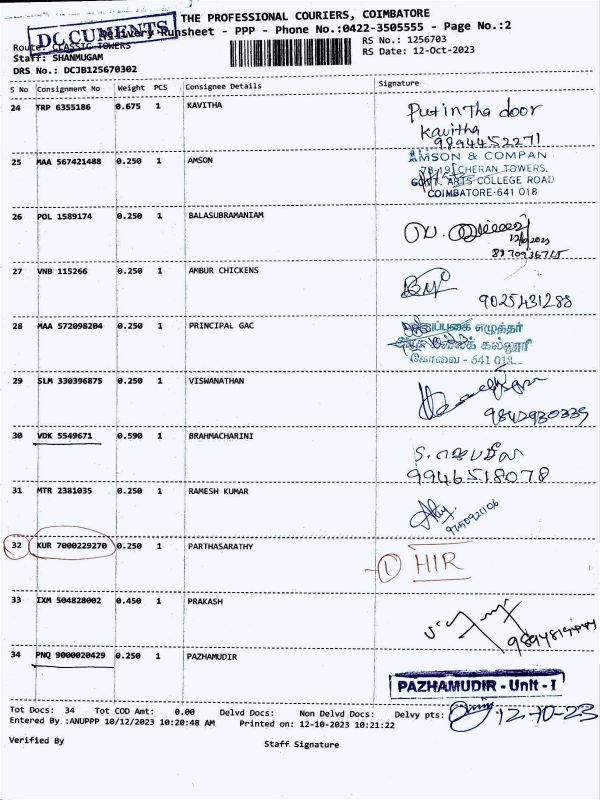 DOCUMENTS
THE PROFESSIONAL COURIERS, COIMBATORE
Delivery Runsheet - PPP - Phone No.:0422-3505555 - Page No.:2
Route: CLASSIC TOWERS
RS No.: 1256703
Staff: SHANMUGAM
RS Date: 12-Oct-2023
DRS No.: DCJB125670302
S No Consignment No Weight PCS Consignee Details Signature
24 TRP 6355186 0.675 1 KAVITHA
Put in tha door
Kavitha
9894452271
25 MAA 567421488 0.250 1 AMSON
AMSON & COMPAN
78-19, CHERAN TOWERS,
GOVT. ARTS COLLEGE ROAD
COIMBATORE-641 018
26 POL 1589174 0.250 1 BALASUBRAMANIAM
27 VNB 115266 0.250 1 AMBUR CHICKENS
9025431288
28 MAA 572098204 0.250 1 PRINCIPAL GAC
எழுத்தர்
கல்லூரி
கோவை - 641 018
29 SLM 330396875 0.250 1 VISWANATHAN
9842930339
30 VDK 5549671 0.590 1 BRAHMACHARINI
9946518078
31 MTR 2381035 0.250 1 RAMESH KUMAR
32 KUR 7000229270 0.250 1 PARTHASARATHY
1 HIR
33 IXM 504828002 0.450 1 PRAKASH
34 PNQ 9000020429 0.250 1 PAZHAMUDIR
PAZHAMUDIR - Unit - I
12-10-23
Tot Docs: 34 Tot COD Amt: 0.00 Delvd Docs: Non Delvd Docs: Delvy pts:
Entered By :ANUPPP 10/12/2023 10:20:48 AM Printed on: 12-10-2023 10:21:22
Verified By
Staff Signature